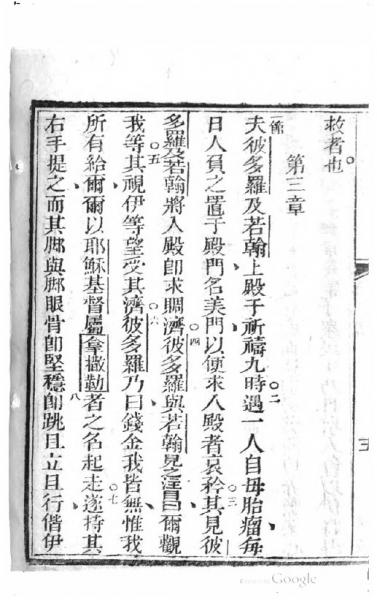 救者也
第三章
一節
夫彼多羅及若翰上殿于祈禱九時遇一人自毋胎瘤每
二
日人負之置于殿門名美門以便求入殿者哀矜其見彼
三
多羅及若翰將入殿卽求賙濟彼多羅與若翰見之曰爾觀
四
我等其視伊等望受其濟彼多羅乃曰錢金我皆無惟我
五
六
所有給爾爾以耶穌基督屬拿撒勒者之名起走遂持其
七
右手提之而其脚與脚眼骨卽堅穩卽跳且立且行偕伊
八
Google